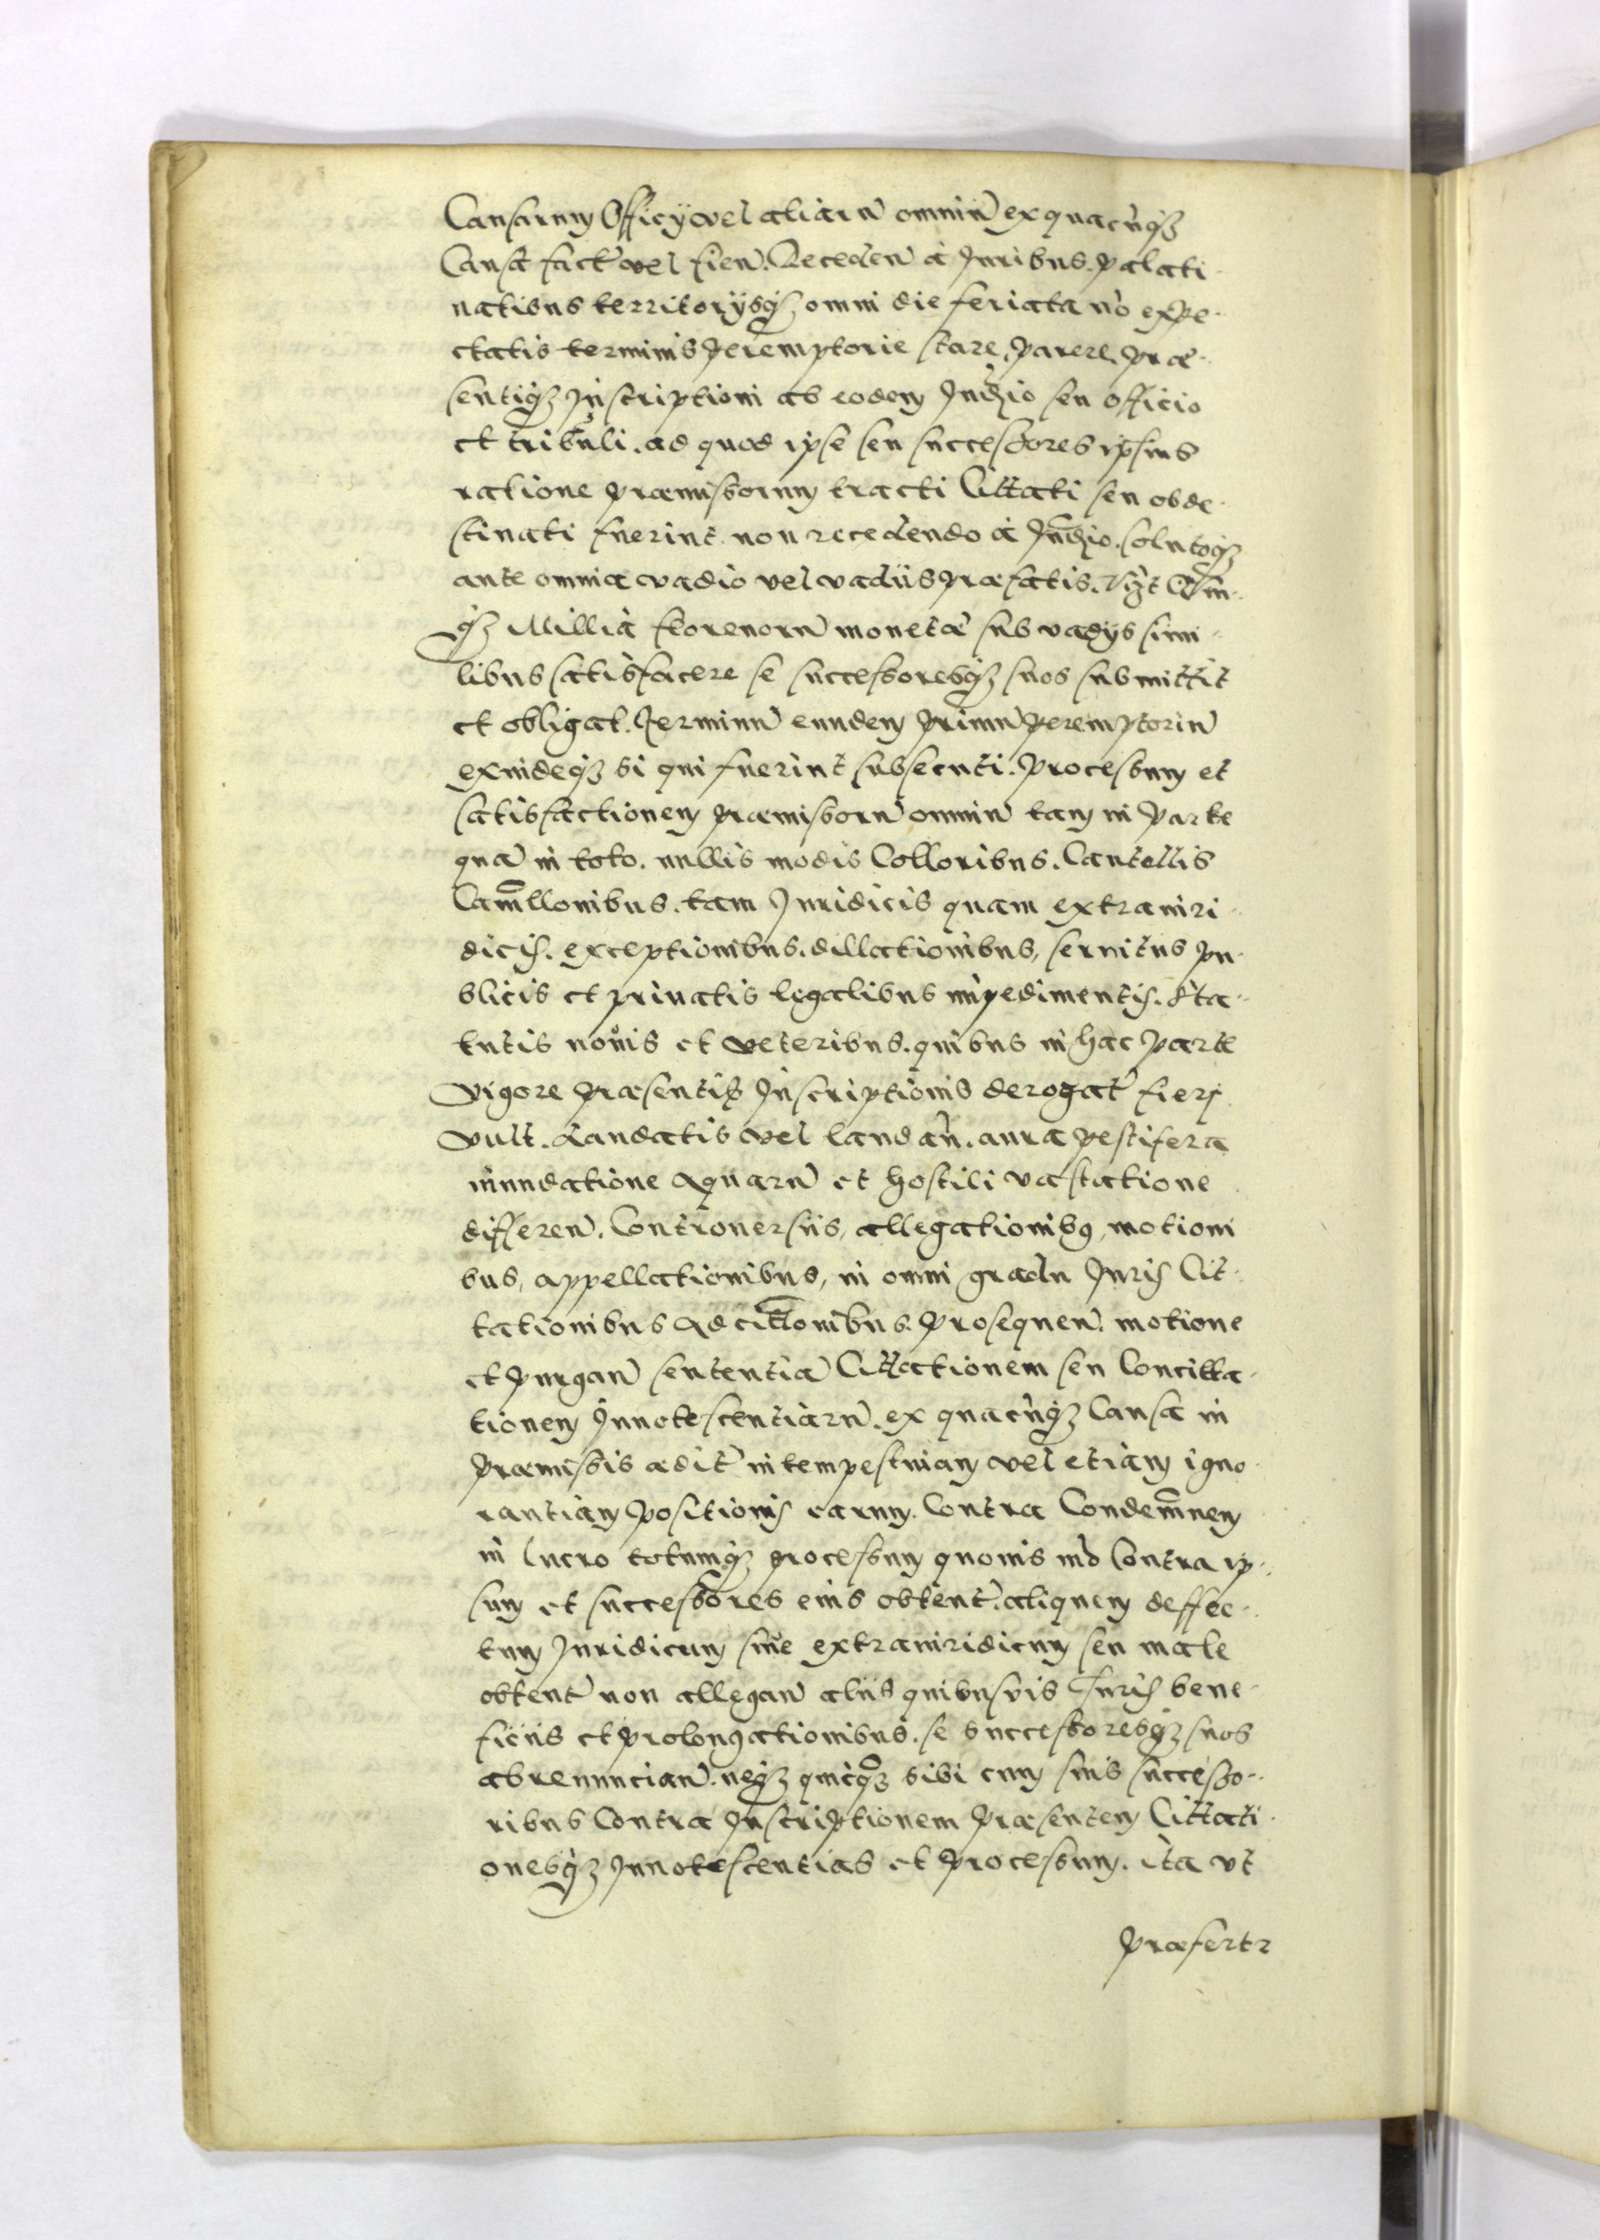 Causarum Officÿ vel aliarū omniū ex quacūqȝ
Causa fact̃ vel fień. Recedeń à Juribus. Palati
natibus territorÿsqȝ omni die feriata nō expe-
ctatis terminis peremptorie stare, parere, præ-
sentiqȝ Inscriptioni ab eodem Judio seu officio
et tribūli. ad quod ipse seu successores ipsius
ratione præmissorum tracti Cittati seu obde-
stinati fuerint non recedendo à Judio. solutoqȝ
ante omnia vadio vel vadiis præfatis.
qȝ Millia florenorū monetæ sub vadÿs simi-
libus satisfacere se successoresqȝ suos submittit
et obligat. Terminū eundem primū peremptoriū
exindeqȝ si qui fuerint subsecuti. Processum et
satisfactionem præmissorū omniū tam in parte
quā in toto. nullis modis Colloribus. Cautellis
Camllonibus. tam Juridicis quam extraiuri
dicis. exceptionibus. dillationibus, seruitus pu-
blicis et priuatis legalibus impedimentis. Sta-
tutis nouis et veteribus. quibus in hac parte
vigore præsentis Inscriptionis derogat̃ fieri
vult. Laudatis vel laudań. aura pestifera
inundatione Aquarū et hostili vastatione
differeń. Controuersiis, allegationibꝰ, motioni
bus, appellationibus, in omni gradu Juris Cit-
tationibus Adcittonibus. Prosequeń. motione
et purgań sententiā Cittationem seu Concitta-
tionem Innotescentiarū. ex quacūqȝ Causa in
præmissis ædit̃ intempestiuam vel etiam igno-
rantiam Positionis earum. Contra Condemnem
in lucro totumqȝ processum quouis mō Contra ip-
sum et successores eius obtent̃. aliquem deffec-
tum Juridicum siue extraiuridicum seu male
obtent̃ non allegań aliis quibusvis Juris bene-
ficiis et prolongationibus. se successoresqȝ suos
abrenunciań. neqȝ quicqȝ sibi cum suis successo-
ribus Contra Inscriptionem præsentem Cittati-
onesqȝ Innotescentias et processum. ita vt
præfertr